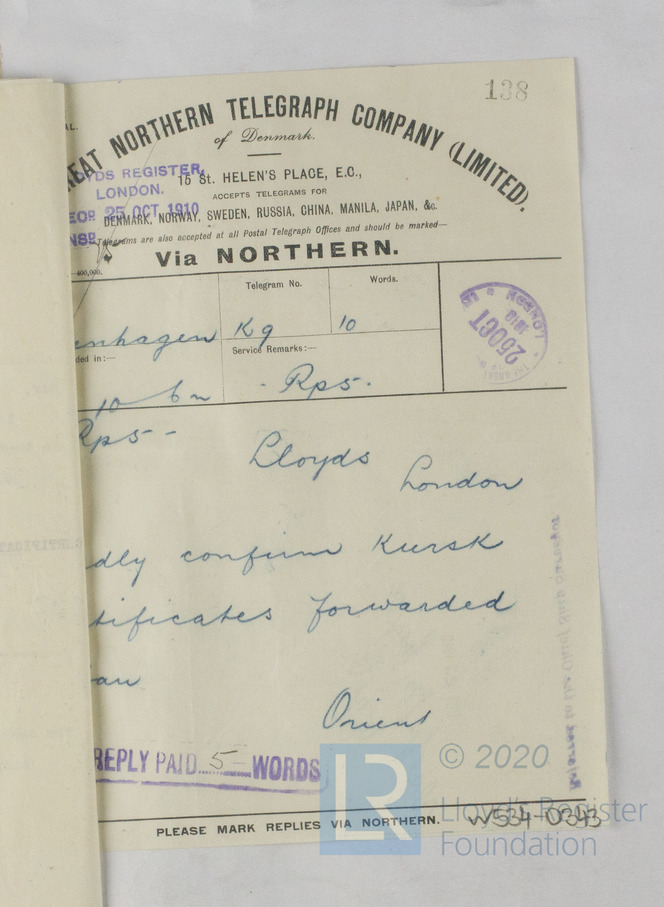 138
AL.
REAT NORTHERN TELEGRAPH COMPANY (LIMITED).
of Denmark.
YDS REGISTER,
LONDON.
25 OCT 1910
15 St. HELEN'S PLACE, E.C.,
ACCEPTS TELEGRAMS FOR
DENMARK, NORWAY, SWEDEN, RUSSIA, CHINA, MANILA, JAPAN, &c.
Telegrams are also accepted at all Postal Telegraph Offices and should be marked—
Via NORTHERN.
—400,000.
Telegram No.
Words.
enhagen
K9
10
ded in:—
Service Remarks:—
10 6 m
- Rp5.
Rp5 -
25 OCT
1910
LONDON
Lloyds
London
dly confirm Kursk
tificates forwarded
an
Orient
Referred to the Chief Ship Surveyor
REPLY PAID 5 WORDS
PLEASE MARK REPLIES VIA NORTHERN.
W534-0343
LR
© 2020
Lloyd's Register
Foundation